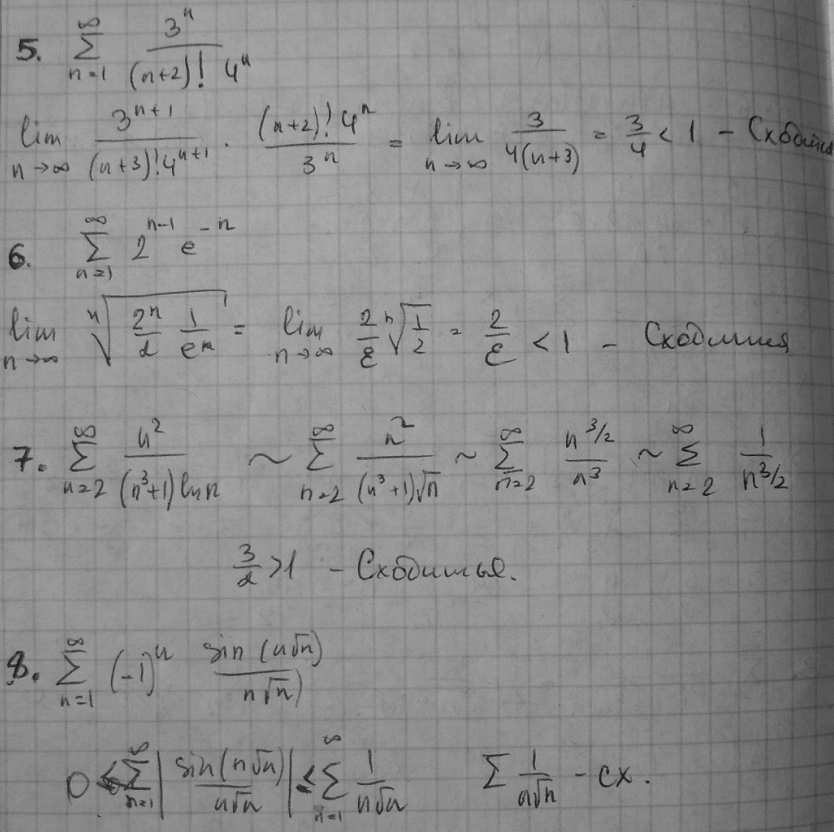 5. ∑_{n=1}^{∞} 3^n / ((n+2)! 4^n)
lim_{n→∞} 3^{n+1} / ((n+3)! 4^{n+1}) · ((n+2)! 4^n) / 3^n = lim_{n→∞} 3 / (4(n+3)) = 3/4 < 1 – Сходится
6. ∑_{n=1}^{∞} 2^{n-1} e^{-n}
lim_{n→∞} ⁿ√(2^n/2 · 1/e^n) = lim_{n→∞} 2/e ⁿ√(1/2) = 2/e < 1 – Сходится
7. ∑_{n=2}^{∞} n^2 / ((n^3+1) ln n) ~ ∑_{n=2}^{∞} n^2 / ((n^3+1)√n) ~ ∑_{n=2}^{∞} n^{3/2} / n^3 ~ ∑_{n=2}^{∞} 1 / n^{3/2}
3/2 > 1 – Сходится.
8. ∑_{n=1}^{∞} (-1)^n sin(n√n) / (n√n)
0 ≤ ∑_{n=1}^{∞} |sin(n√n) / (n√n)| ≤ ∑_{n=1}^{∞} 1 / (n√n) ∑ 1 / (n√n) – сх.